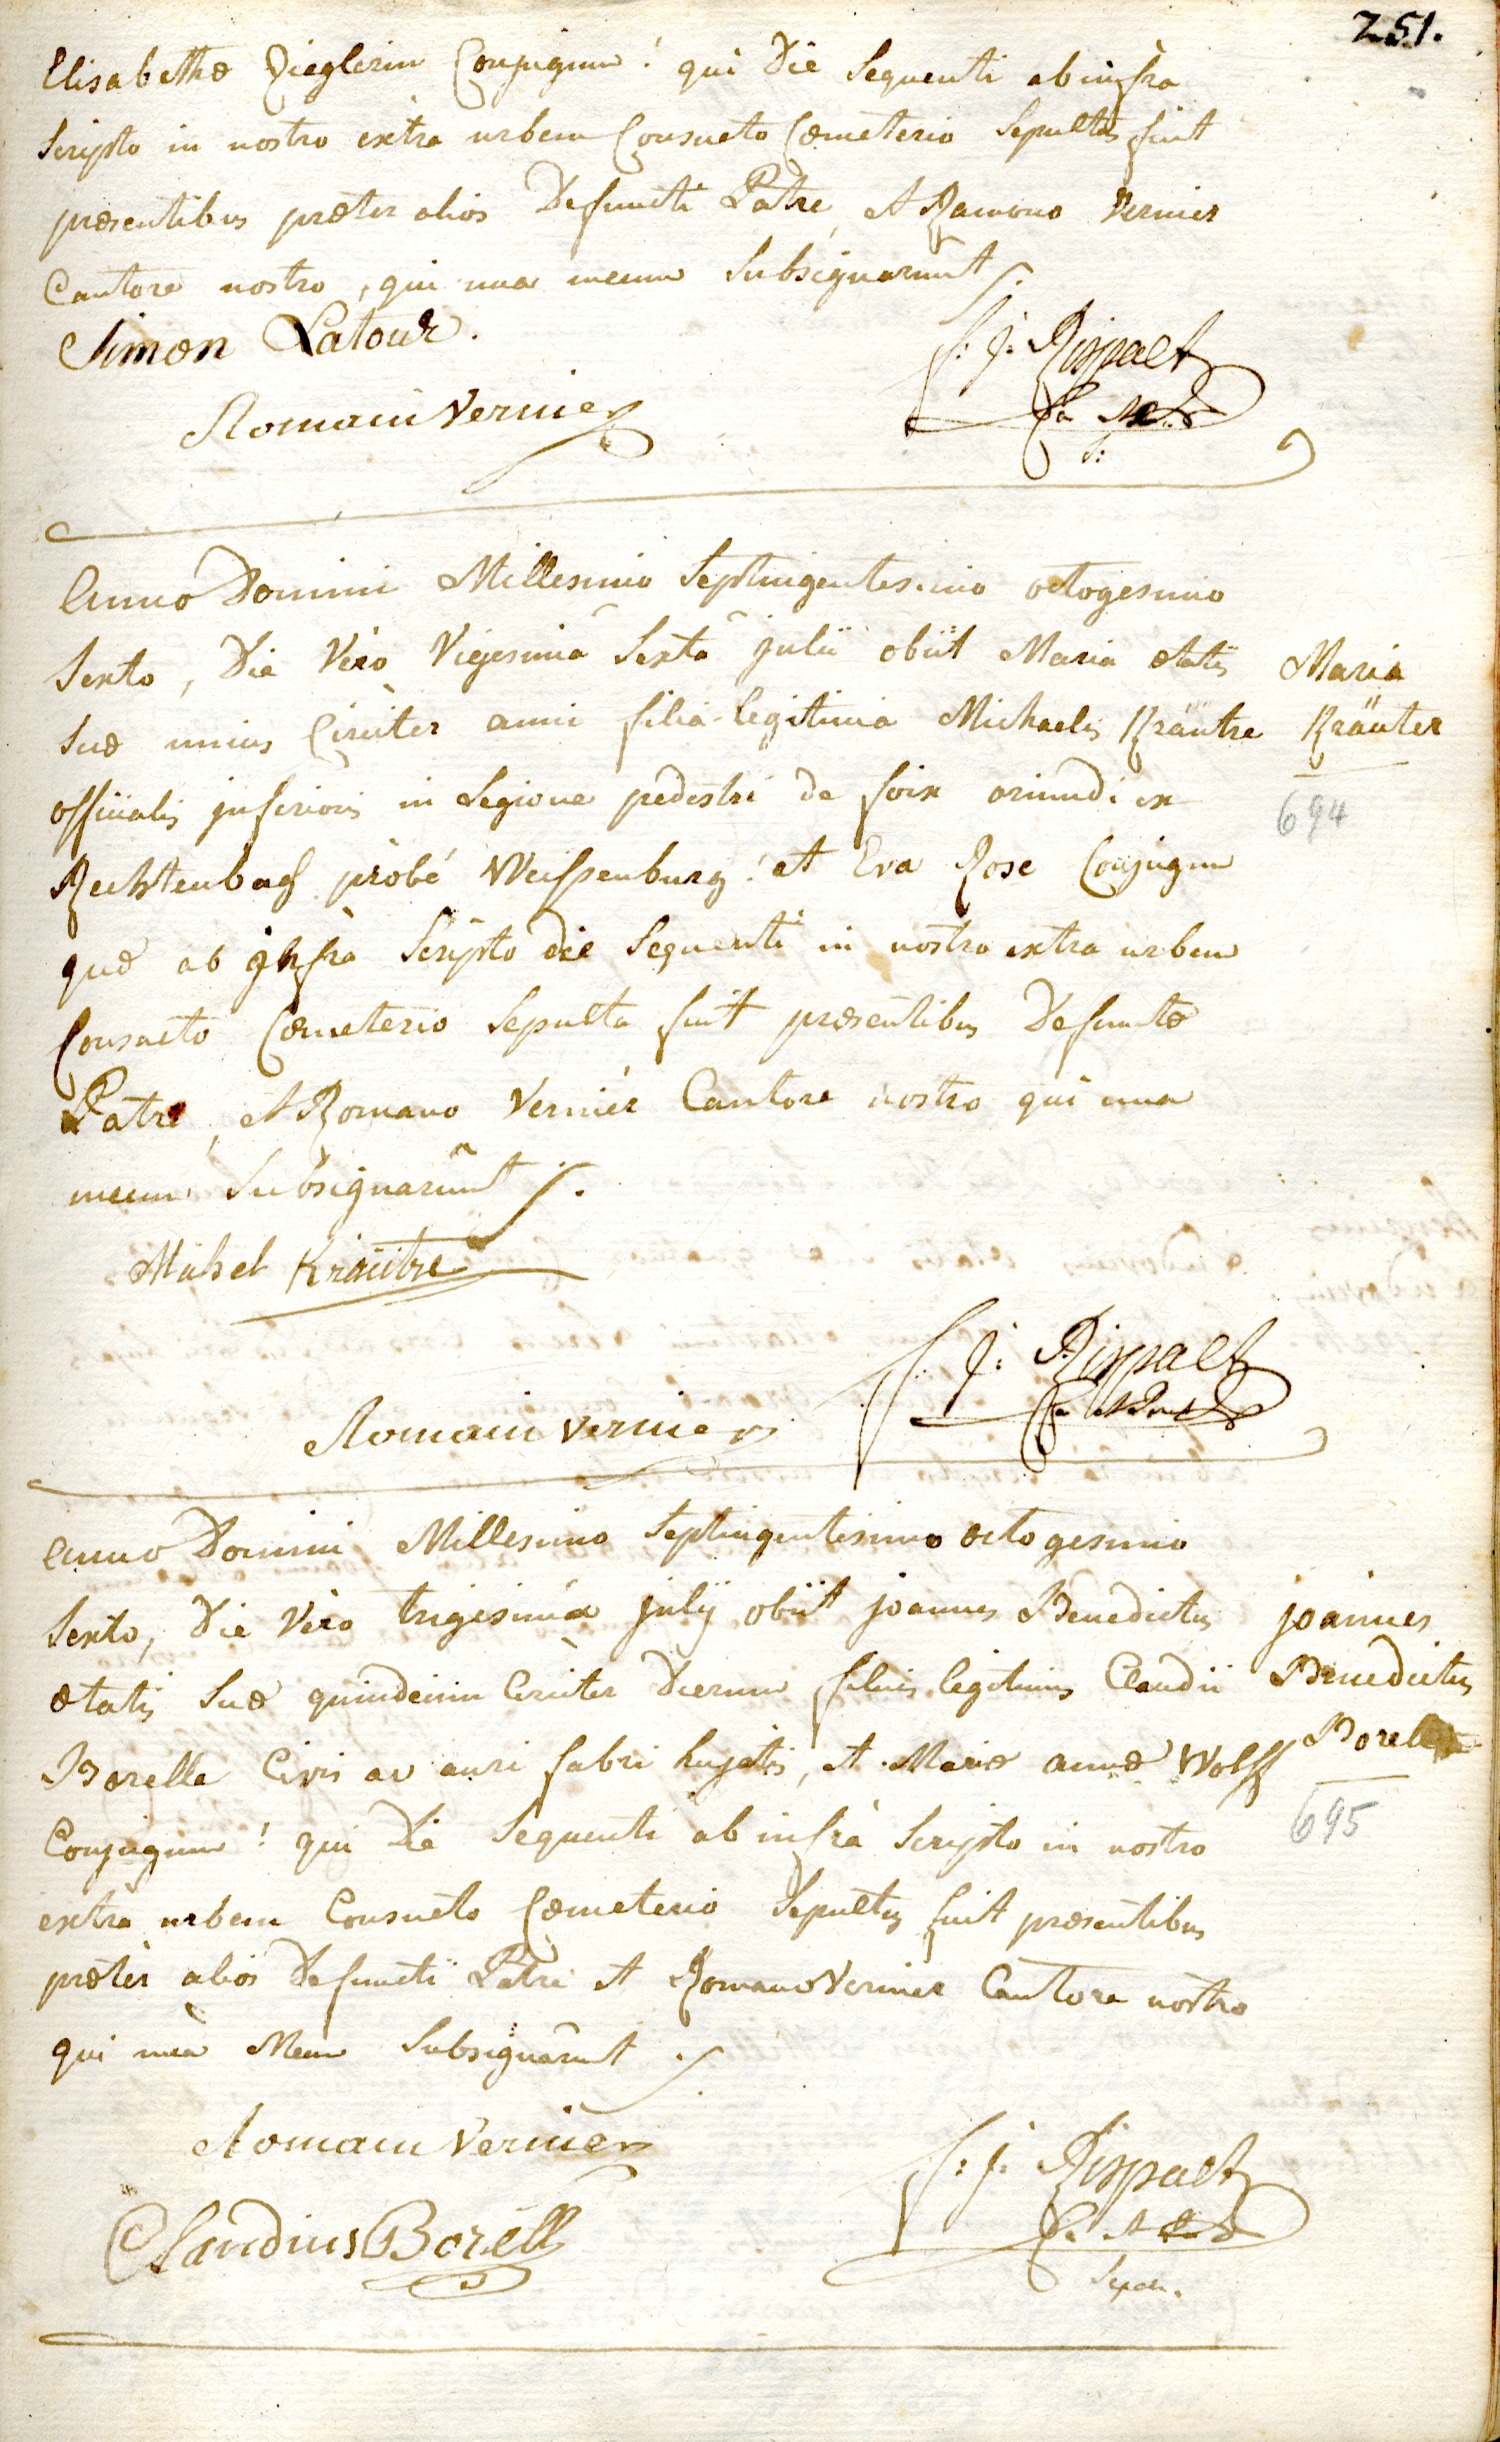 251.
Elisabethæ Zieglerin Conjugum! qui Die Sequenti ab infra
Scripto in nostro extra urbem Consueto Cœmeterio Sepultus fuit
præsentibus præter alios Defuncti Patre, et Romano Vernier
Cantore nostro, qui una mecum Subsignarunt
Simon Latour.
F: J: Rispalt
Romain Vernier
S:
Anno Domini Millesimo Septingentesimo octogesimo
Sexto, Die Vero Vigesima Sexta julii obiit Maria ætatis
Suæ unius Circiter anni filia legitima Michaelis Kräutre
officialis inferioris in Legione pedestri de foix oriundi ex
Rechtenbach probè Weissenburg! et Eva Rose Conjugum
quæ ab infra Scripto die Sequenti in nostro extra urbem
Consueto Cœmeterio Sepulta fuit præsentibus Defunctæ
Patre, et Romano Vernier Cantore nostro qui una
mecum Subsignarunt
Maria
Kräuter
694
Michel Kraütre
F: J: Rispalt
Romain Vernier
Anno Domini Millesimo Septingentesimo octogesimo
Sexto, Die Vero trigesima julij obiit joannes Benedictus
ætatis Suæ quindecim Circiter Dierum filius legitimus Claudii
Borelle Civis ac auri fabri hujatis, et Mariæ annæ Wolff
Conjugum! qui Die Sequenti ab infrà Scripto in nostro
extra urbem Consueto Cœmeterio Sepultus fuit præsentibus
præter alios Defuncti Patre et Romano Vernier Cantore nostro
qui una Mecum Subsignarunt
joannes
Benedictus
Borelle
695
Romain Vernier
F: J: Rispalt
Claudius Borell